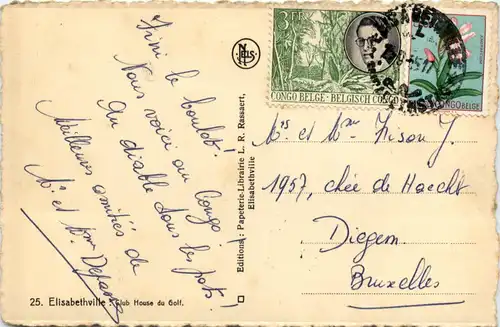 Fini le boulot!
Nous voici au Congo!
Au diable tous les pots!
Meilleures amitiés de
Mr et Mme
25. Elisabethville : Club House du Golf.
NELS
Editions: Papeterie-Librairie L. R. Rassaert,
Elisabethville
3 FR
CONGO BELGE - BELGISCH CONGO
CONGO BELGE
Mrs et Mme Frison J.
1957, chée de Haecht
Diegem
Bruxelles